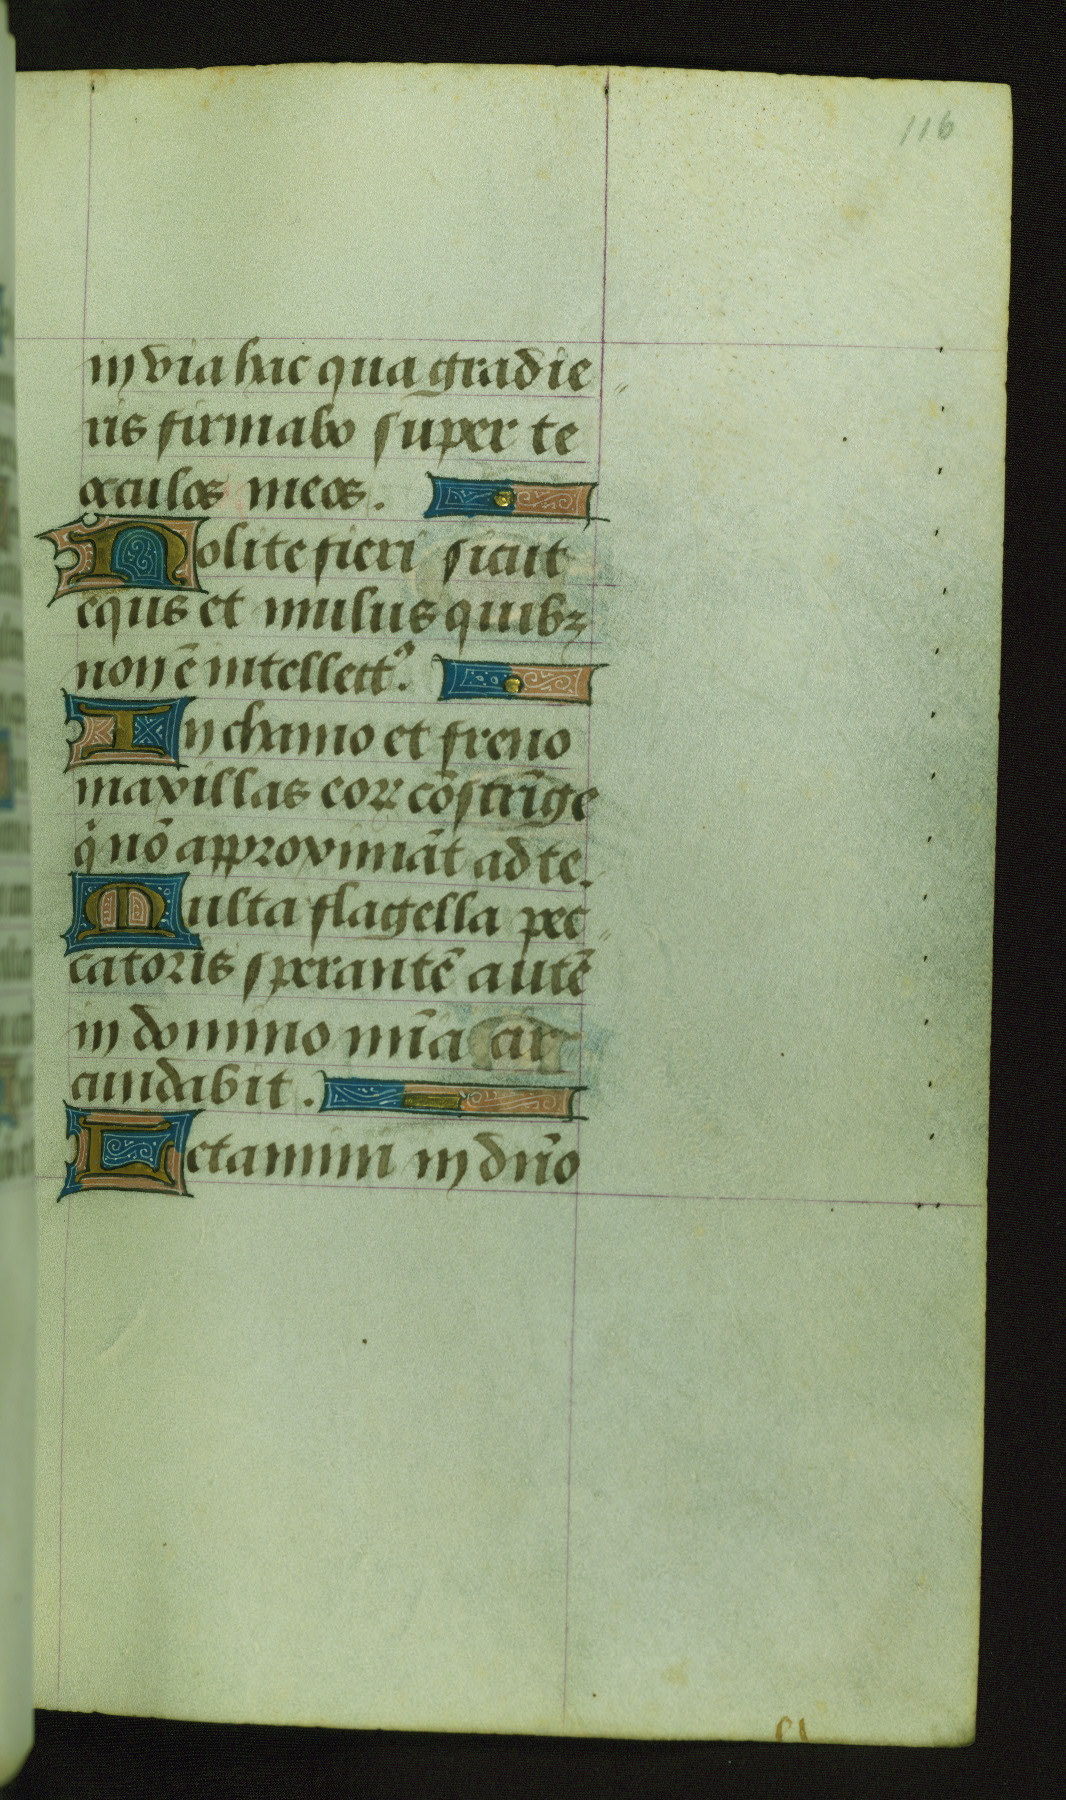 116
in via hac qua gradie
ris firmabo super te
occulos meos.
Nolite fieri sicut
equs et mulus quibꝫ
non ē intellectꝰ.
In chamo et freno
maxillas eoꝝ cōstrīge
qͥ nō approximāt ad te.
Multa flagella pec
catoris sperantē autē
in domino mīa cir
cundabit.
Letamini in dn̄o